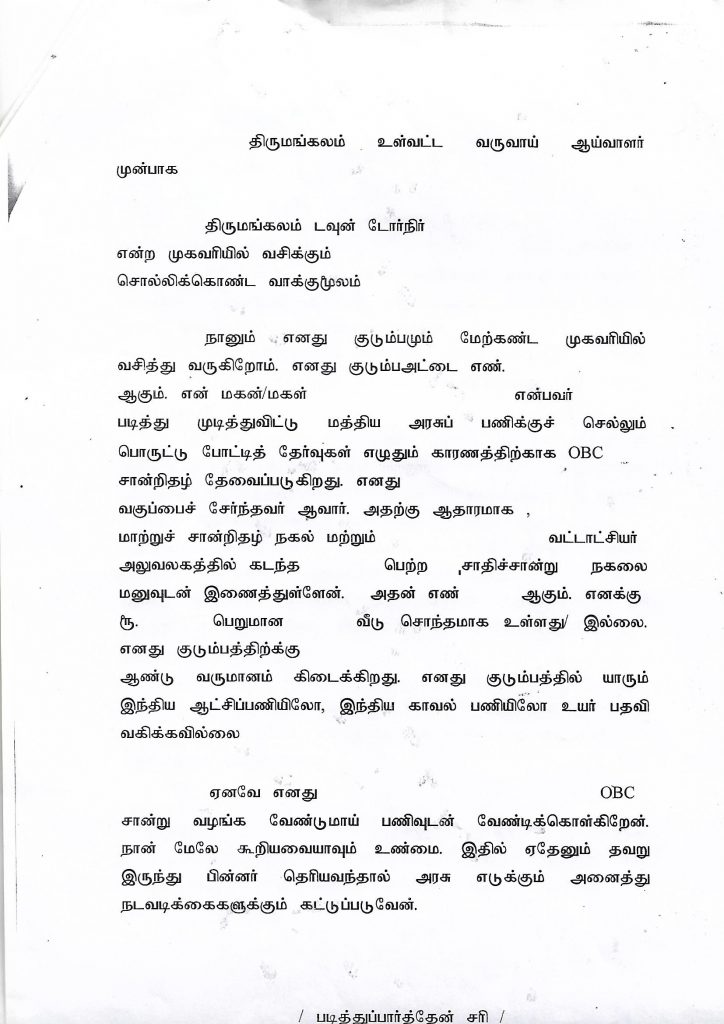 திருமங்கலம் உள்வட்ட வருவாய் ஆய்வாளர்
முன்பாக
திருமங்கலம் டவுன் டோர்நிர்
என்ற முகவரியில் வசிக்கும்
சொல்லிக்கொண்ட வாக்குமூலம்
நானும் எனது குடும்பமும் மேற்கண்ட முகவரியில்
வசித்து வருகிறோம். எனது குடும்பஅட்டை எண்.
ஆகும். என் மகன்/மகள் என்பவர்
படித்து முடித்துவிட்டு மத்திய அரசுப் பணிக்குச் செல்லும்
பொருட்டு போட்டித் தேர்வுகள் எழுதும் காரணத்திற்காக OBC
சான்றிதழ் தேவைப்படுகிறது. எனது
வகுப்பைச் சேர்ந்தவர் ஆவார். அதற்கு ஆதாரமாக ,
மாற்றுச் சான்றிதழ் நகல் மற்றும் வட்டாட்சியர்
அலுவலகத்தில் கடந்த பெற்ற சாதிச்சான்று நகலை
மனுவுடன் இணைத்துள்ளேன். அதன் எண் ஆகும். எனக்கு
ரூ. பெறுமான வீடு சொந்தமாக உள்ளது/ இல்லை.
எனது குடும்பத்திற்க்கு
ஆண்டு வருமானம் கிடைக்கிறது. எனது குடும்பத்தில் யாரும்
இந்திய ஆட்சிப்பணியிலோ, இந்திய காவல் பணியிலோ உயர் பதவி
வகிக்கவில்லை
ஏனவே எனது OBC
சான்று வழங்க வேண்டுமாய் பணிவுடன் வேண்டிக்கொள்கிறேன்.
நான் மேலே கூறியவையாவும் உண்மை. இதில் ஏதேனும் தவறு
இருந்து பின்னர் தெரியவந்தால் அரசு எடுக்கும் அனைத்து
நடவடிக்கைகளுக்கும் கட்டுப்படுவேன்.
/ படித்துப்பார்த்தேன் சரி /